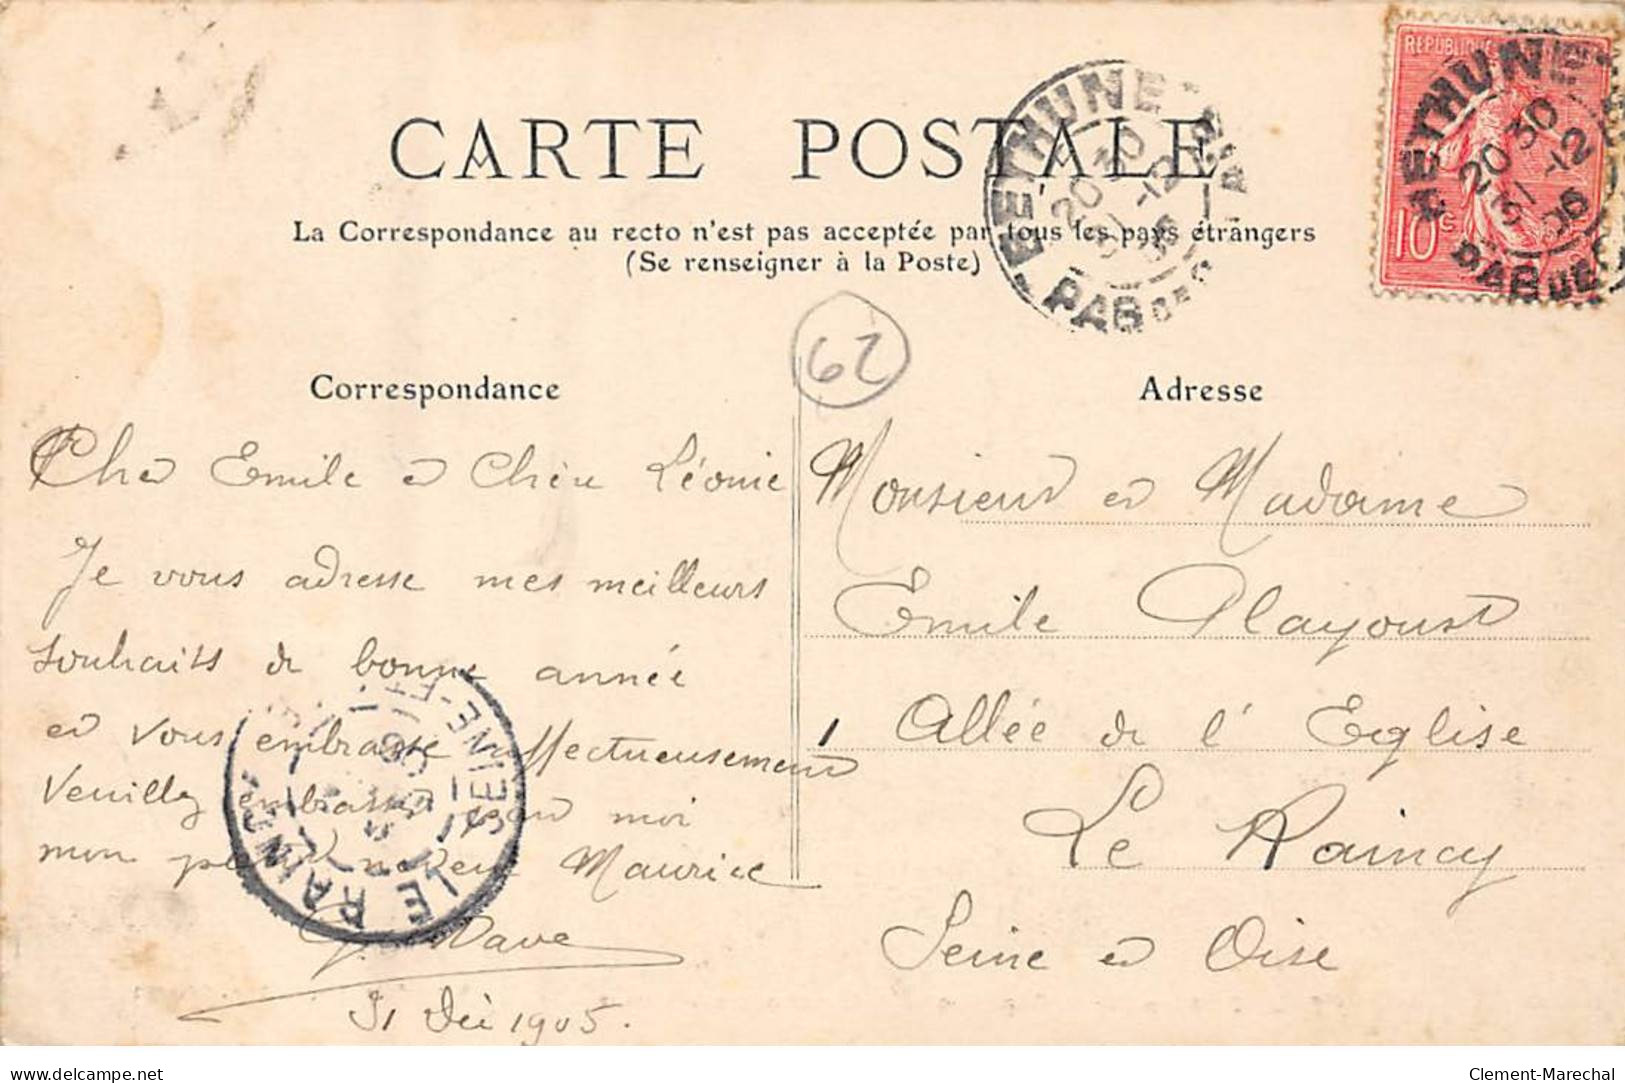 CARTE POSTALE
La Correspondance au recto n'est pas acceptée par tous les pays étrangers
(Se renseigner à la Poste)
BETHUNE
20 30
31 -12
05
PAS DE C
REPUBLIQUE
10c
BETHUNE
20 30
31 -12
05
PAS DE
62
Correspondance
Cher Emile et Chère Léonie
Je vous adresse mes meilleurs
souhaits de bonne année
et vous embrasse affectueusement
Veuillez embrasser pour moi
mon petit neveu Maurice
Dave
31 Déc 1905.
LE RAINCY
SEINE-ET-
Adresse
Monsieur et Madame
Emile Playoust
1 Allée de l'Eglise
Le Raincy
Seine et Oise
www.delcampe.net
Clement-Marechal